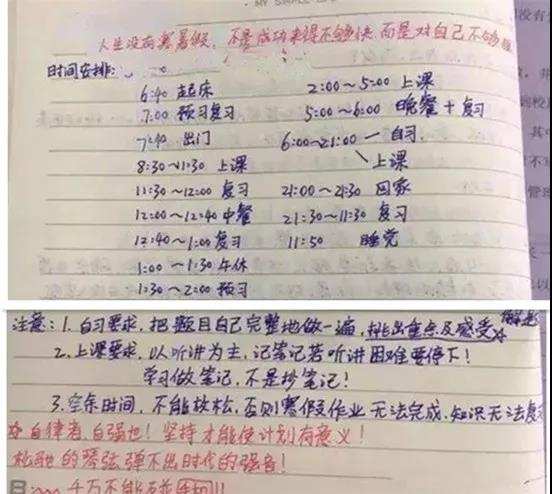 MY SIMPLE
人生没有寒暑假, 不是成功来得不够快, 而是对自己不够狠
时间安排:
6:40 起床 2:00～5:00 上课
7:00 预习复习 5:00～6:00 晚餐+复习
7:40 出门 6:00～21:00 — 自习
8:30～11:30 上课 \上课
11:30～12:00 复习 21:00～21:30 回家
12:00～12:40 中餐 21:30～11:30 复习
12:40～1:00 复习 11:50 睡觉
1:00～1:30 午休
1:30～2:00 预习
注意: 1. 自习要求, 把题目自己完整地做一遍, 挑出重点及感受
2. 上课要求, 以听讲为主, 记笔记若听讲困难要停下!
学习做笔记, 不是抄笔记!
3. 空余时间, 不能放松, 否则寒假作业无法完成, 知识无法复
自律者, 自强也! 坚持才能使计划有意义!
松弛的琴弦, 弹不出时代的强音!
千万不能